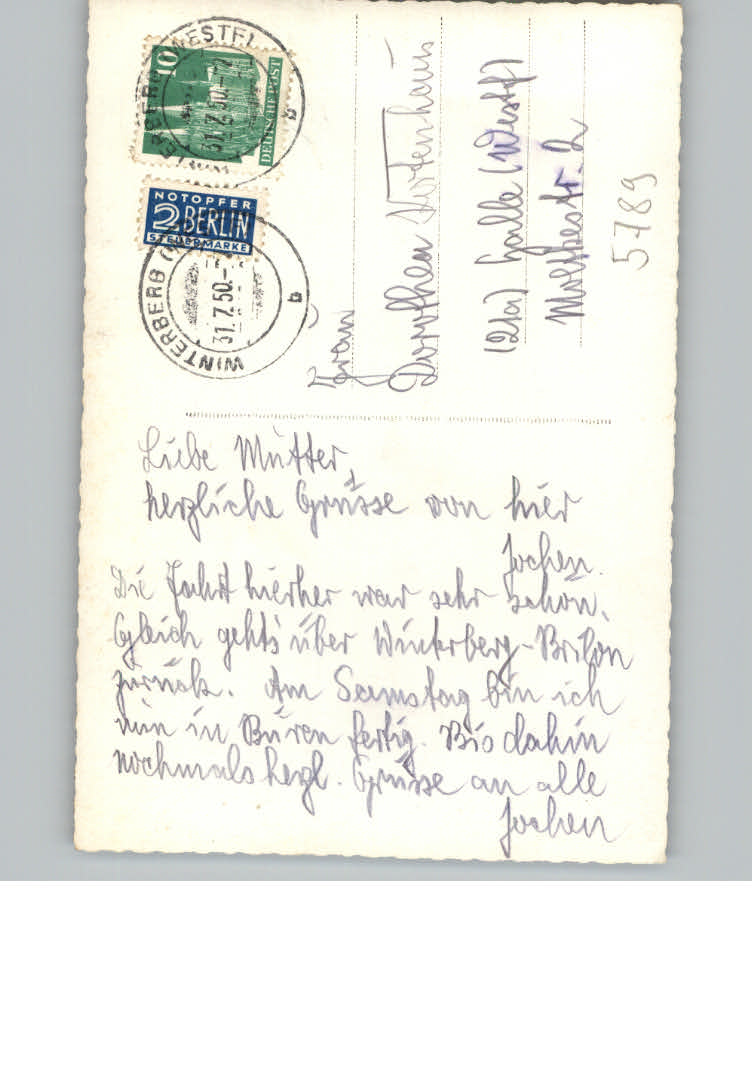 WINTERBERG (WESTF)
31.7.50.-12
b
10
DEUTSCHE POST
NOTOPFER
2 BERLIN
STEUERMARKE
WINTERBERG
31.7.50.-
b
Frau
Dorothea Kortenhaus
(21a) Halle (Westf)
Moltkestr. 2
5789
Liebe Mutter,
herzliche Grüsse von hier
Jochen.
Die Fahrt hierher war sehr schön.
Gleich gehts über Winterberg-Brilon
zurück. Am Samstag bin ich
nun in Büren fertig. Bis dahin
nochmals herzl. Grüsse an alle
Jochen